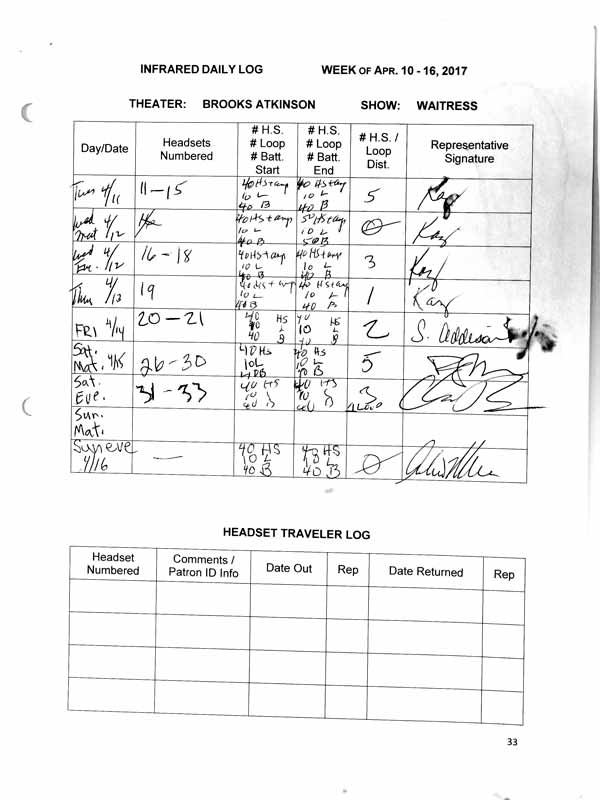 INFRARED DAILY LOG WEEK OF APR. 10 - 16, 2017
THEATER: BROOKS ATKINSON SHOW: WAITRESS
Day/Date
Headsets
Numbered
# H.S.
# Loop
# Batt.
Start
# H.S.
# Loop
# Batt.
End
# H.S. /
Loop
Dist.
Representative
Signature
Tues 4/11
11-15
40 HS + amp
10 L
40 B
40 HS + amp
10 L
40 B
5
Kay
Wed 4/
Mat 12
40 HS + amp
10 L
40 B
HS + amp
10 L
50 B
0
Kay
Wed 4/
Ev. 12
16-18
40 HS + amp
10 L
40 B
40 HS + amp
10 L
40 B
3
Kay
Thu 4/13
19
40 HS + amp
10 L
40 B
40 HS + amp
10 L
40 B
1
Kay
FRI 4/14
20-21
40 HS
L
B
40 HS
10 L
B
2
S. Addison
Sat.
Mat. 4/15
26-30
40 HS
10 L
40 B
40 HS
10 L
40 B
5
Sat.
Eve.
31-33
40 HS
10
40 B
40 HS
10
3
Sun.
Mat.
Sun eve
4/16
—
40 HS
10 L
40 B
40 HS
10 L
40 B
0
HEADSET TRAVELER LOG
Headset
Numbered
Comments /
Patron ID Info
Date Out
Rep
Date Returned
Rep
33